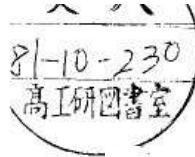 81-10-230
高工研図書室